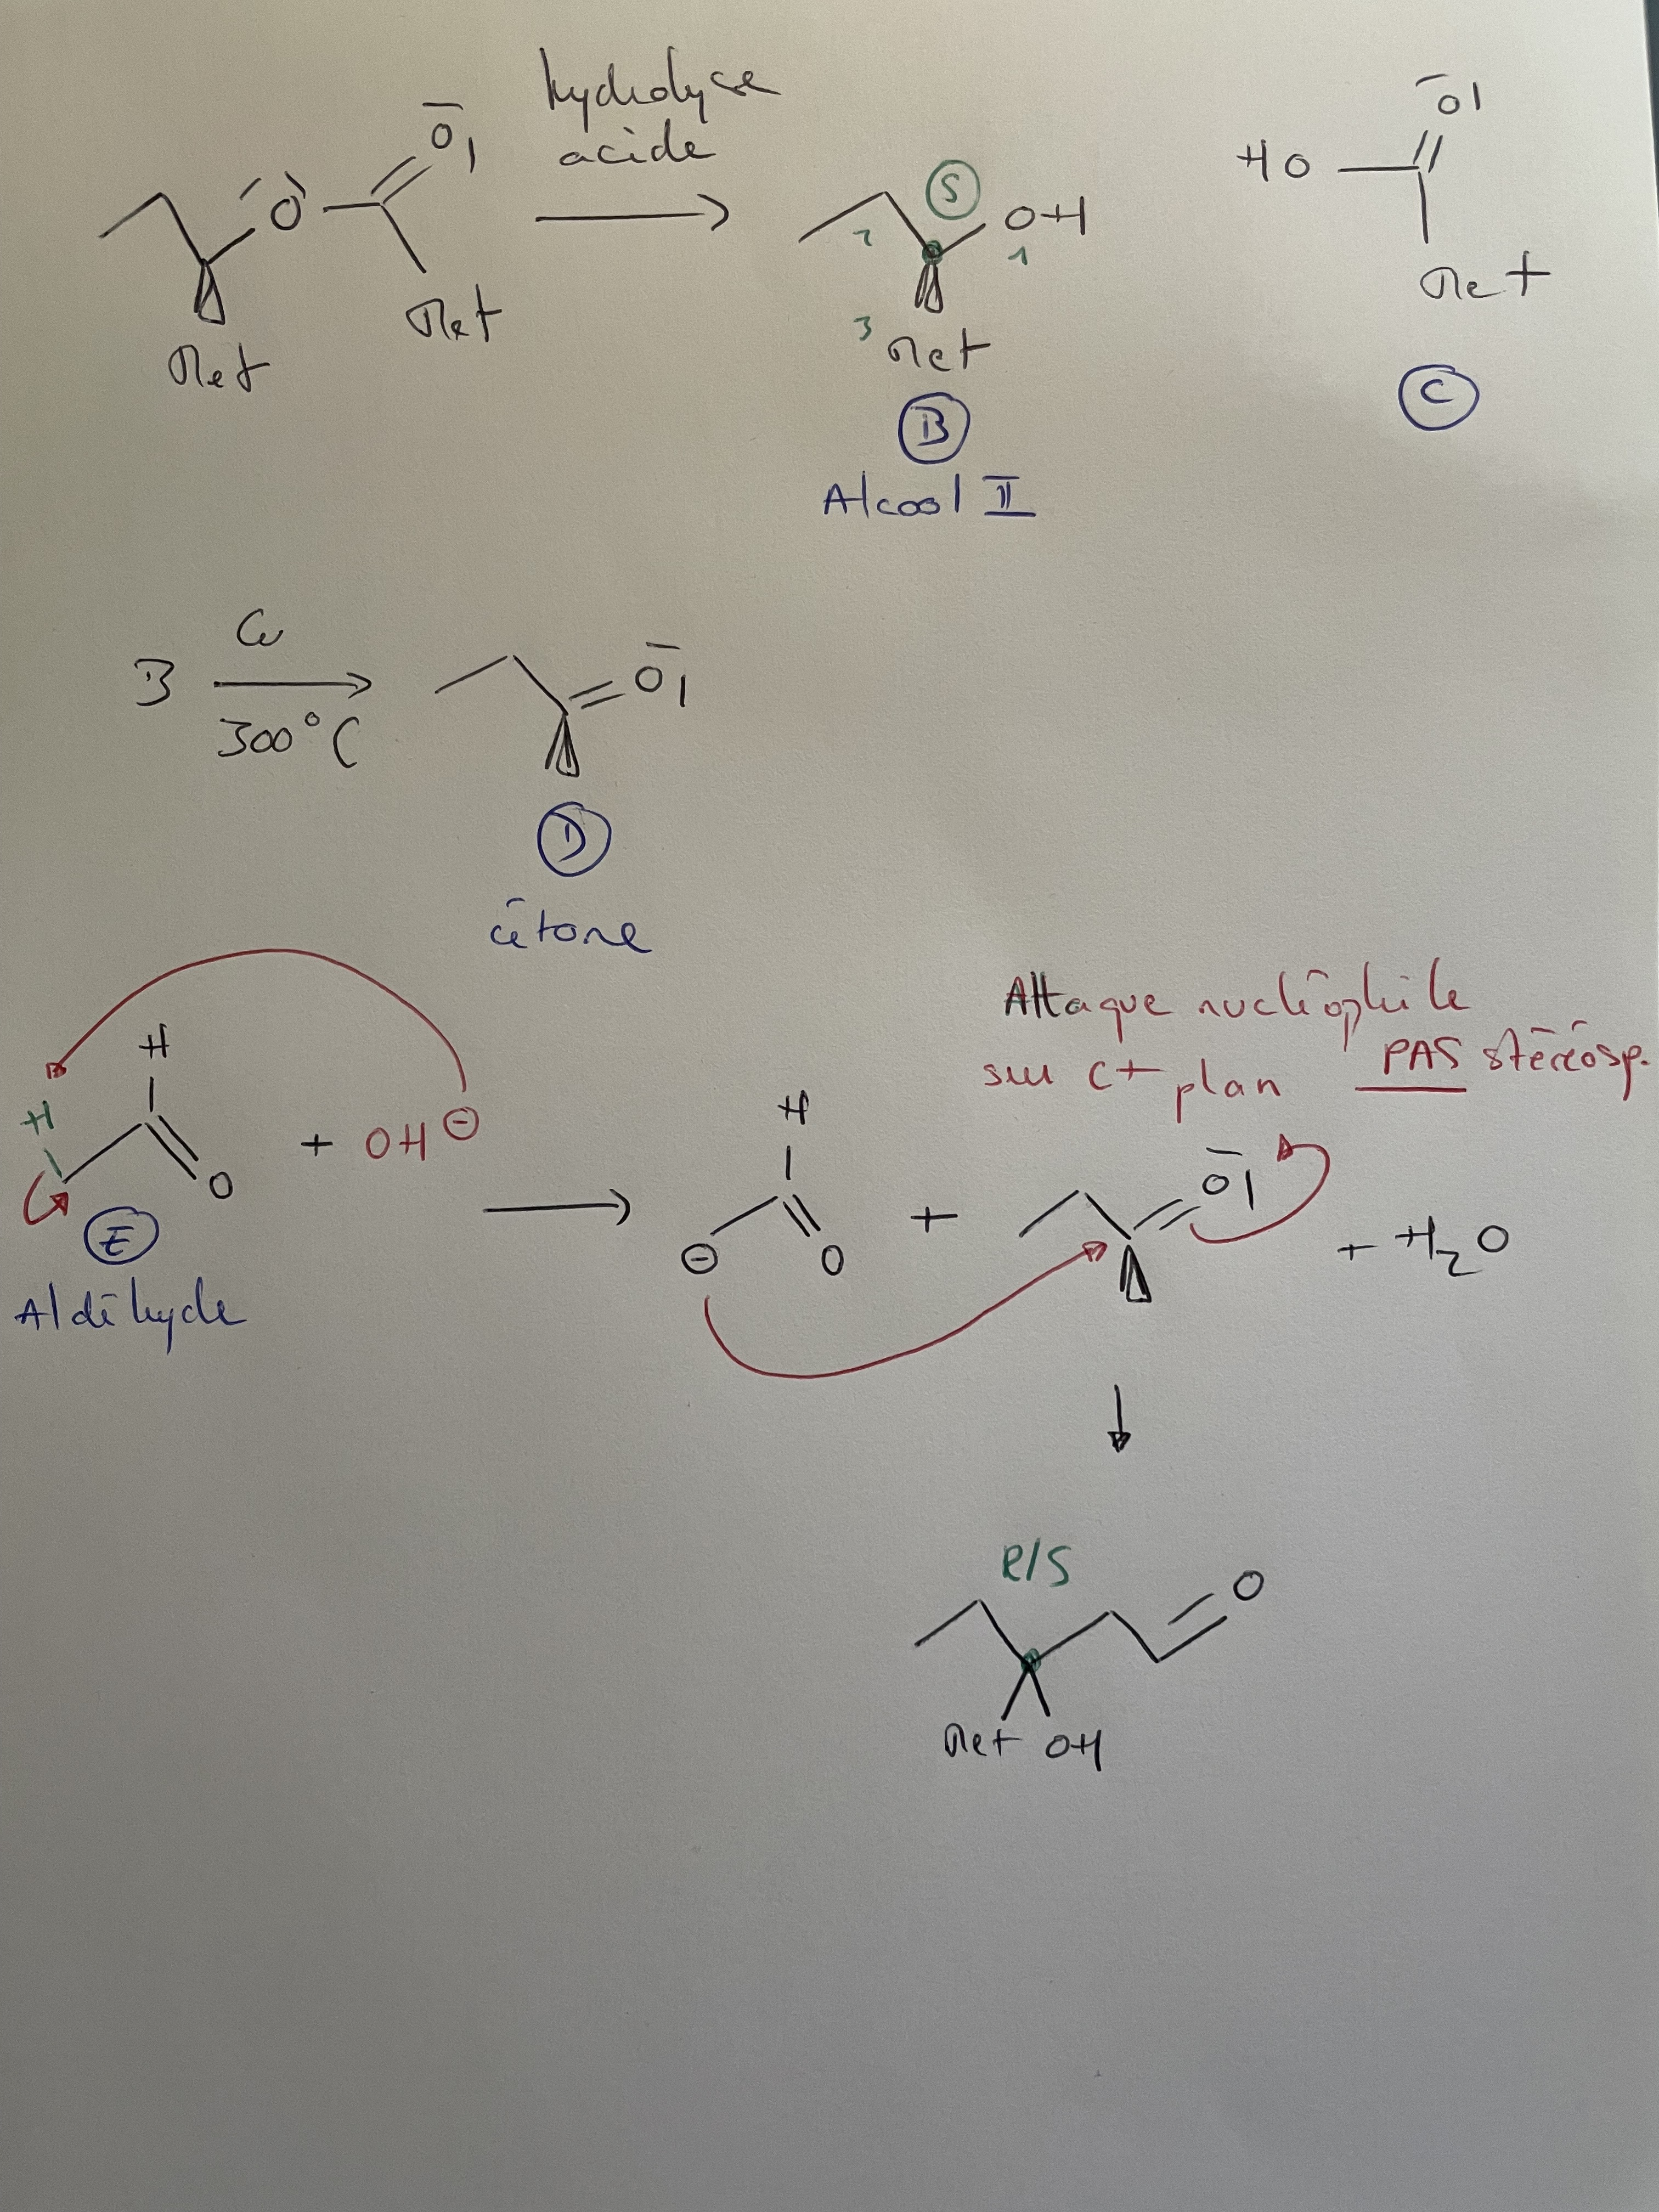 hydrolyse
acide
O O
Met Met
S
OH
2 1
3 Met
B
Alcool II
O
HO
Met
C
B Cu
300°C
O
D
cétone
H
H
O + OH ⊖
E
Aldéhyde
Attaque nucléophile
sur C+ plan PAS stéréosp.
H
⊖ O + O + H2O
R/S
O
Met OH